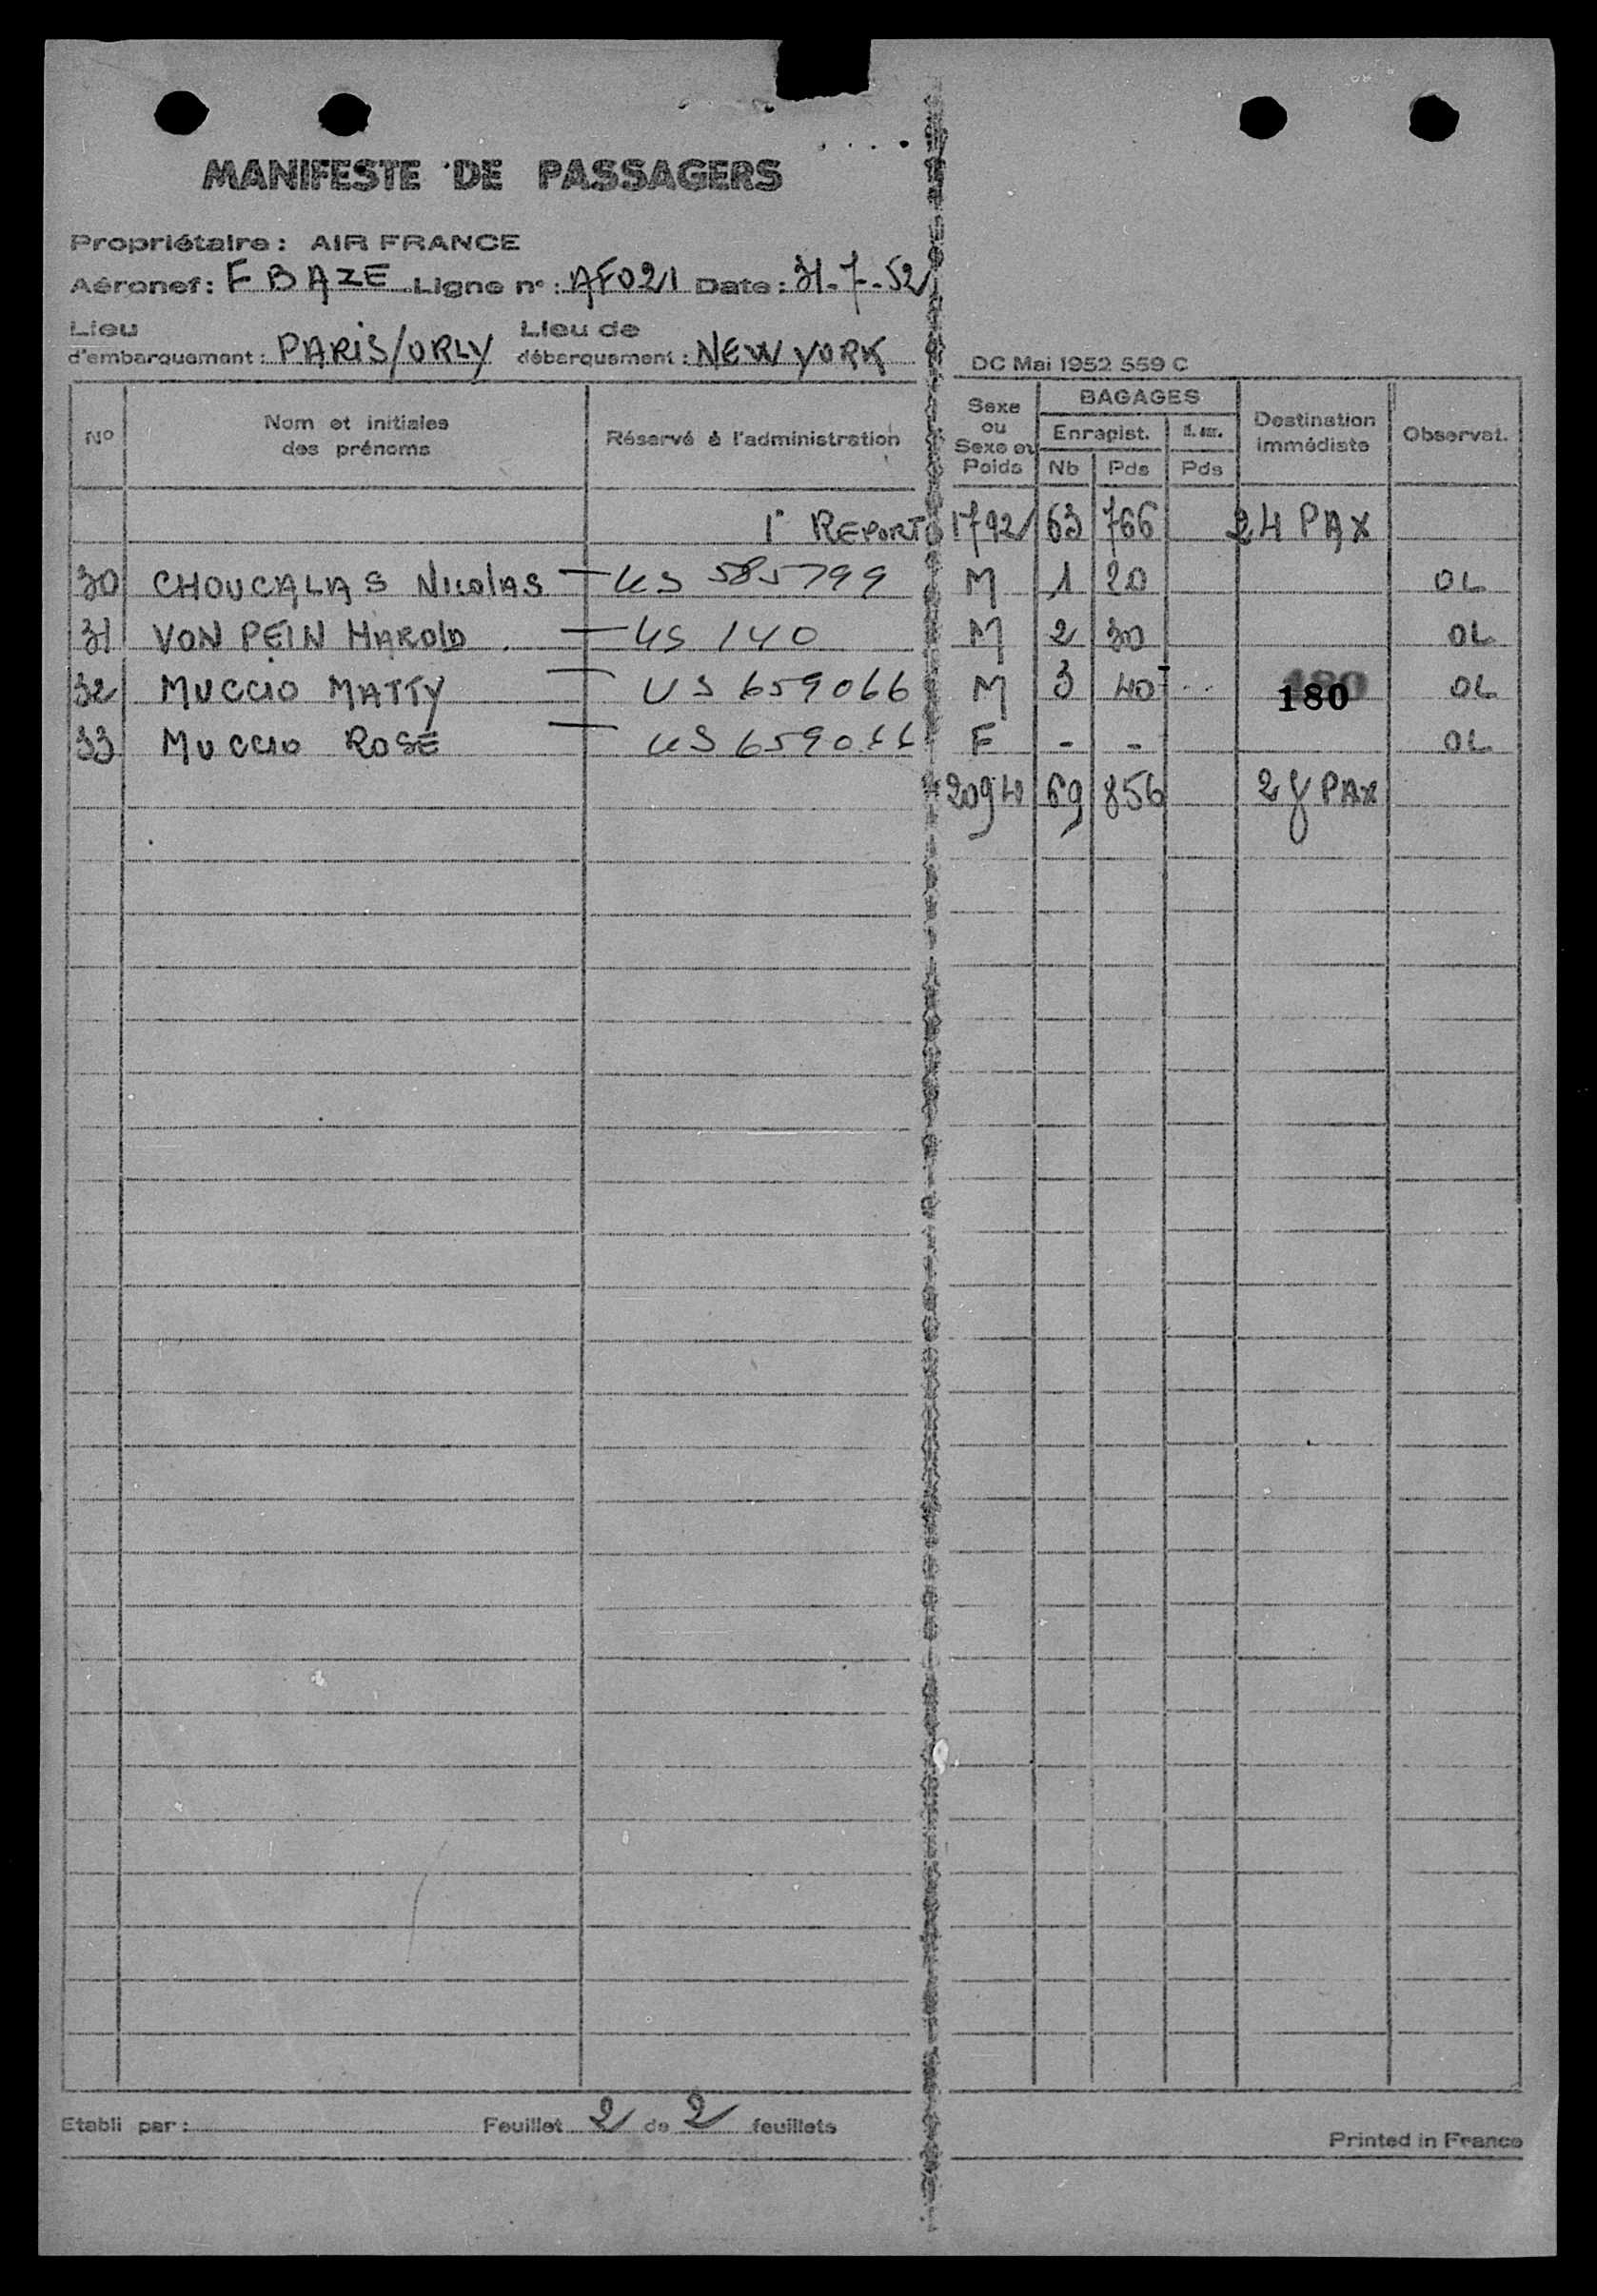 MANIFESTE DE PASSAGERS
Propriétaire : AIR FRANCE
Aéronef : F BAZE Ligne n° : AF021 Date : 31-7-52
Lieu d'embarquement : PARIS/ORLY Lieu de débarquement : NEW YORK
DC Mai 1952 559 C
N° Nom et initiales des prénoms Réservé à l'administration Sexe ou Sexe et Poids BAGAGES Enregist. Nb Pds Pds Destination immédiate Observat.
1° REPORT 1792 63 766 24 PAX
30 CHOUCALAS Nicolas US 585799 M 1 20 OL
31 VON PEIN HAROLD US 140 M 2 30 OL
32 MUCCIO MATTY US 659066 M 3 40 180 OL
33 MUCCIO ROSE US 659066 F - - OL
69 856 28 PAX
Etabli par : Feuillet 2 de 2 feuillets
Printed in France